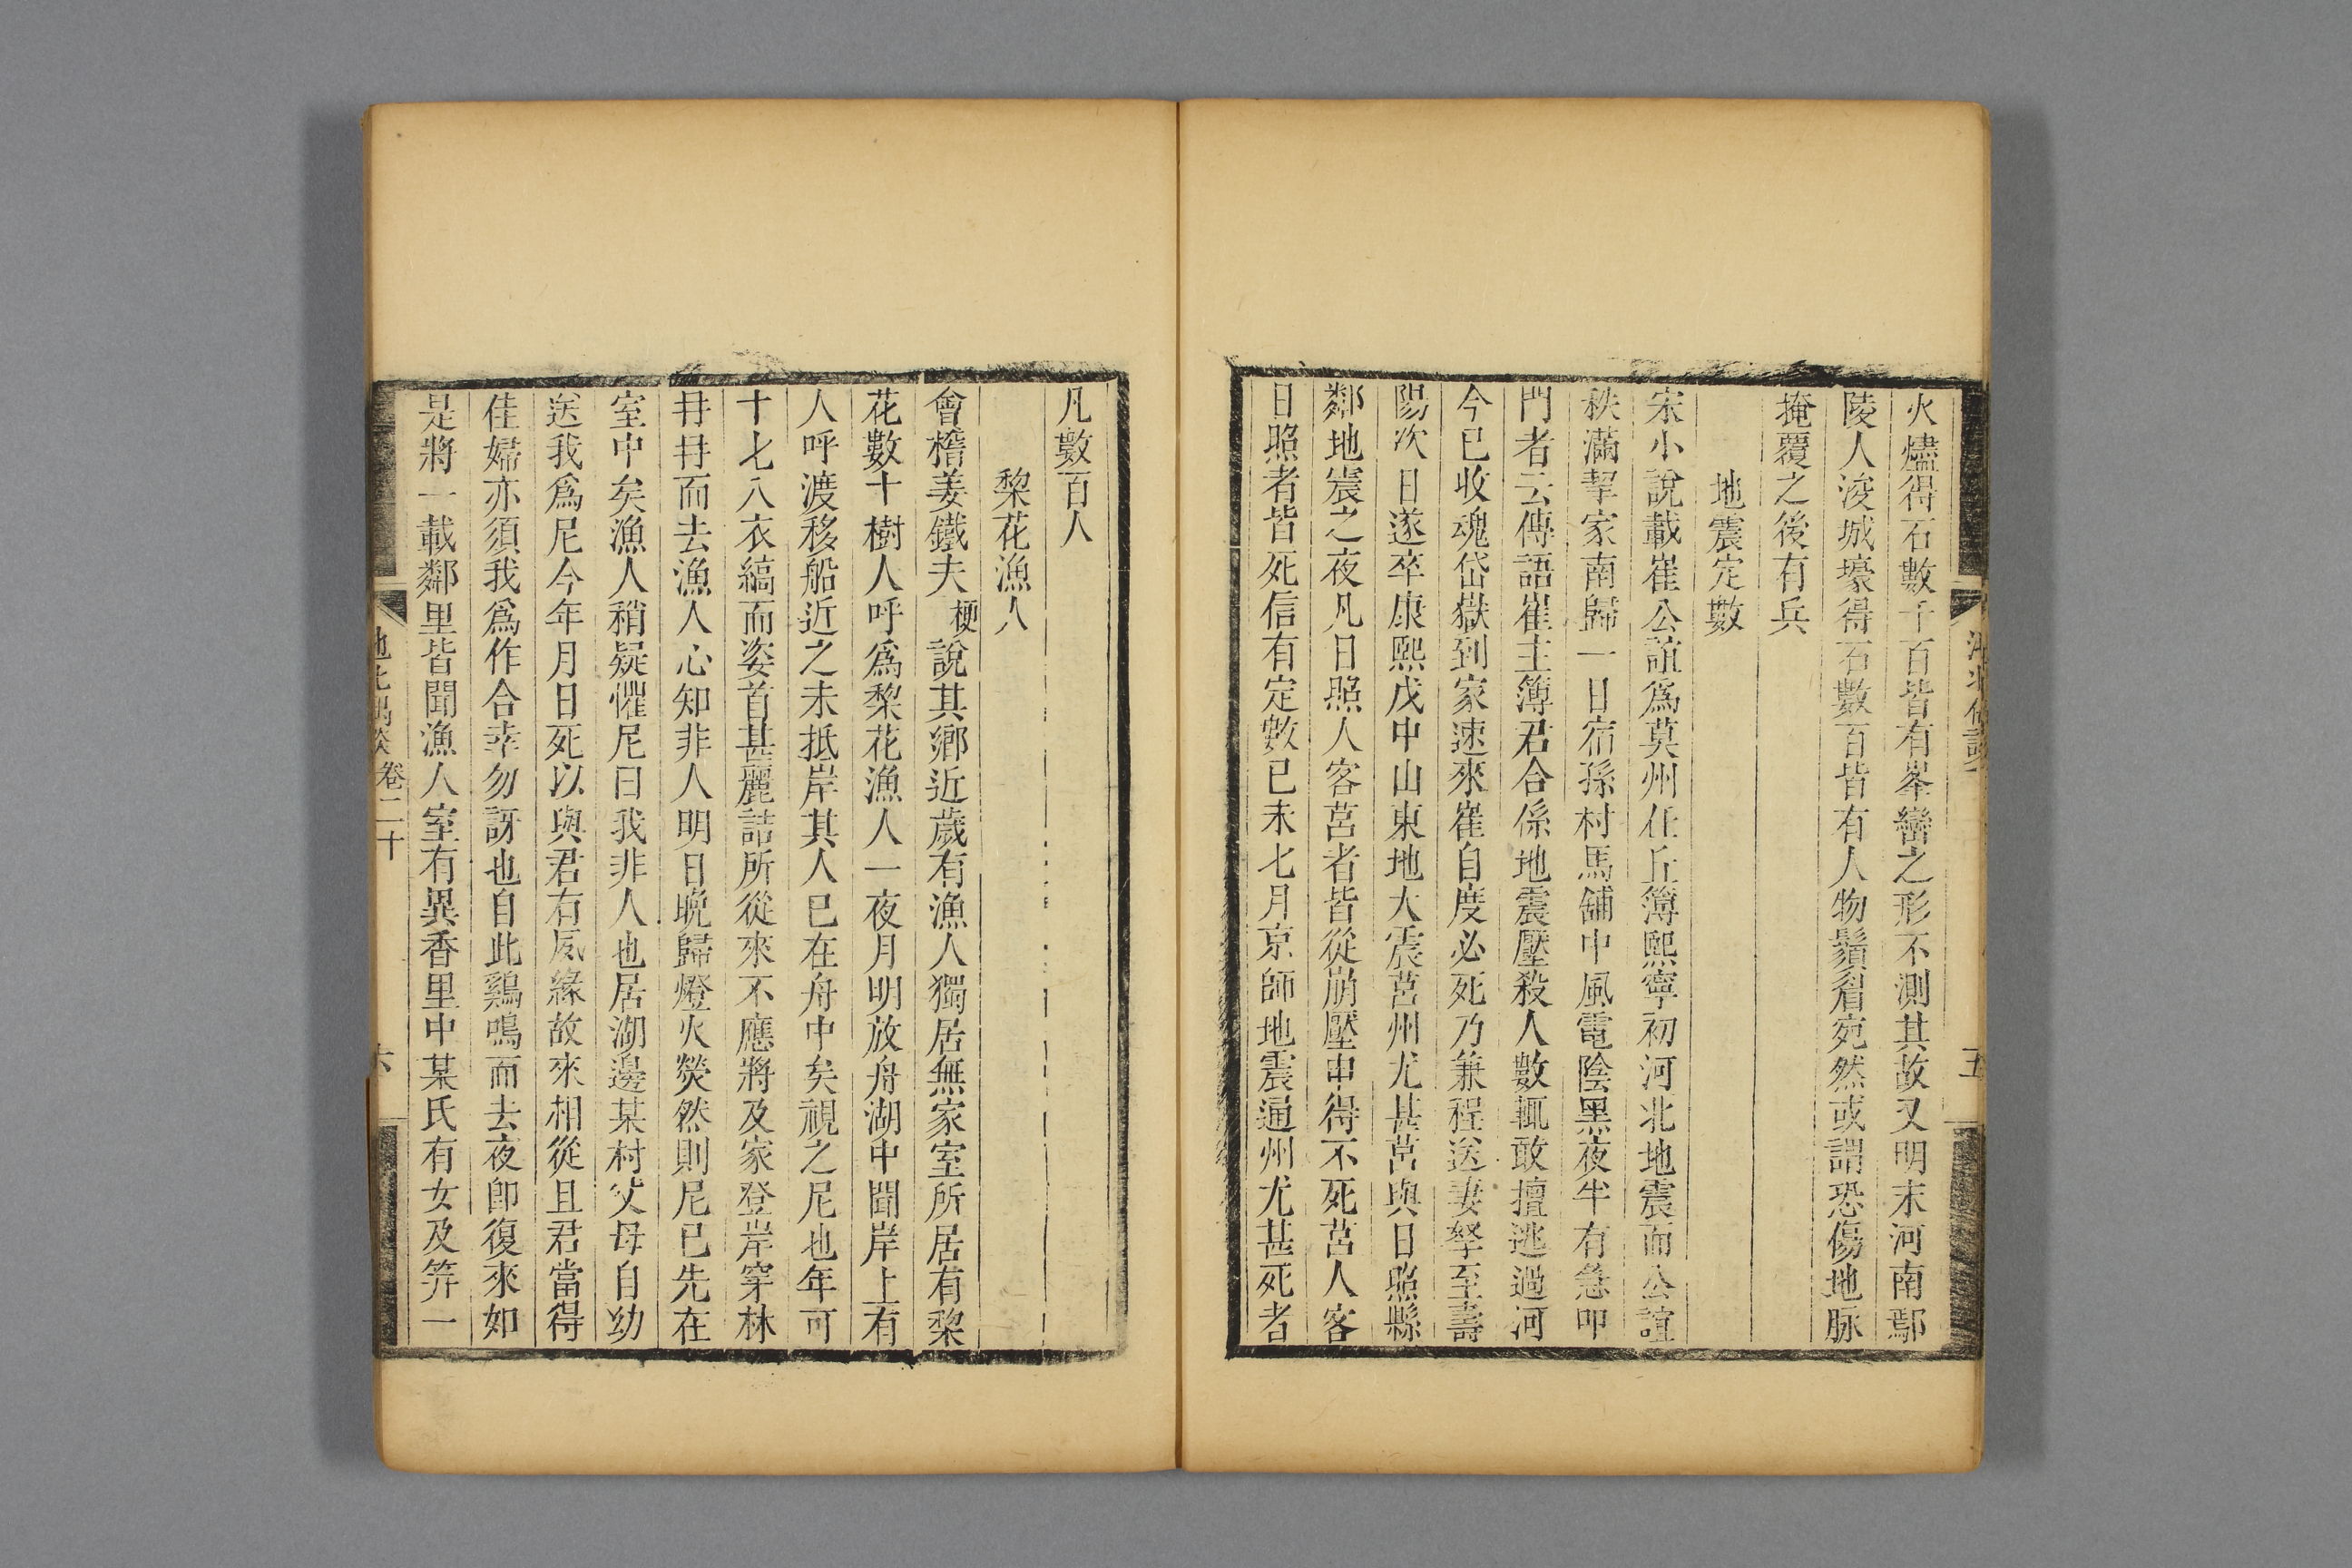 火燼得石數千百皆有峯巒之形不測其故又明末河南鄢
陵人浚城壕得石數百皆有人物鬚眉宛然或謂恐傷地脉
掩覆之後有兵
地震定數
宋小說載崔公誼爲莫州任丘簿熙寧初河北地震而公誼
秩滿挈家南歸一日宿孫村馬舖中風電陰黑夜半有急叩
門者云傳語崔主簿君合係地震壓殺人數輒敢擅逃過河
今已收魂岱嶽到家速來崔自度必死乃兼程送妻孥至壽
陽次日遂卒康熙戊申山東地大震莒州尤甚莒與日照縣
鄰地震之夜凡日照人客莒者皆從崩壓中得不死莒人客
日照者皆死信有定數己未七月京師地震通州尤甚死者
五
凡數百人
棃花漁人
會稽姜鐵夫梗說其鄉近歲有漁人獨居無家室所居有棃
花數十樹人呼爲棃花漁人一夜月明放舟湖中聞岸上有
人呼渡移船近之未抵岸其人已在舟中矣視之尼也年可
十七八衣縞而姿首甚麗詰所從來不應將及家登岸穿林
冉冉而去漁人心知非人明日晚歸燈火熒然則尼已先在
室中矣漁人稍疑懼尼曰我非人也居湖邊某村父母自幼
送我爲尼今年月日死以與君有夙緣故來相從且君當得
佳婦亦須我爲作合幸勿訝也自此鷄鳴而去夜卽復來如
是將一載鄰里皆聞漁人室有異香里中某氏有女及笄一
池北偶談 卷二十 六